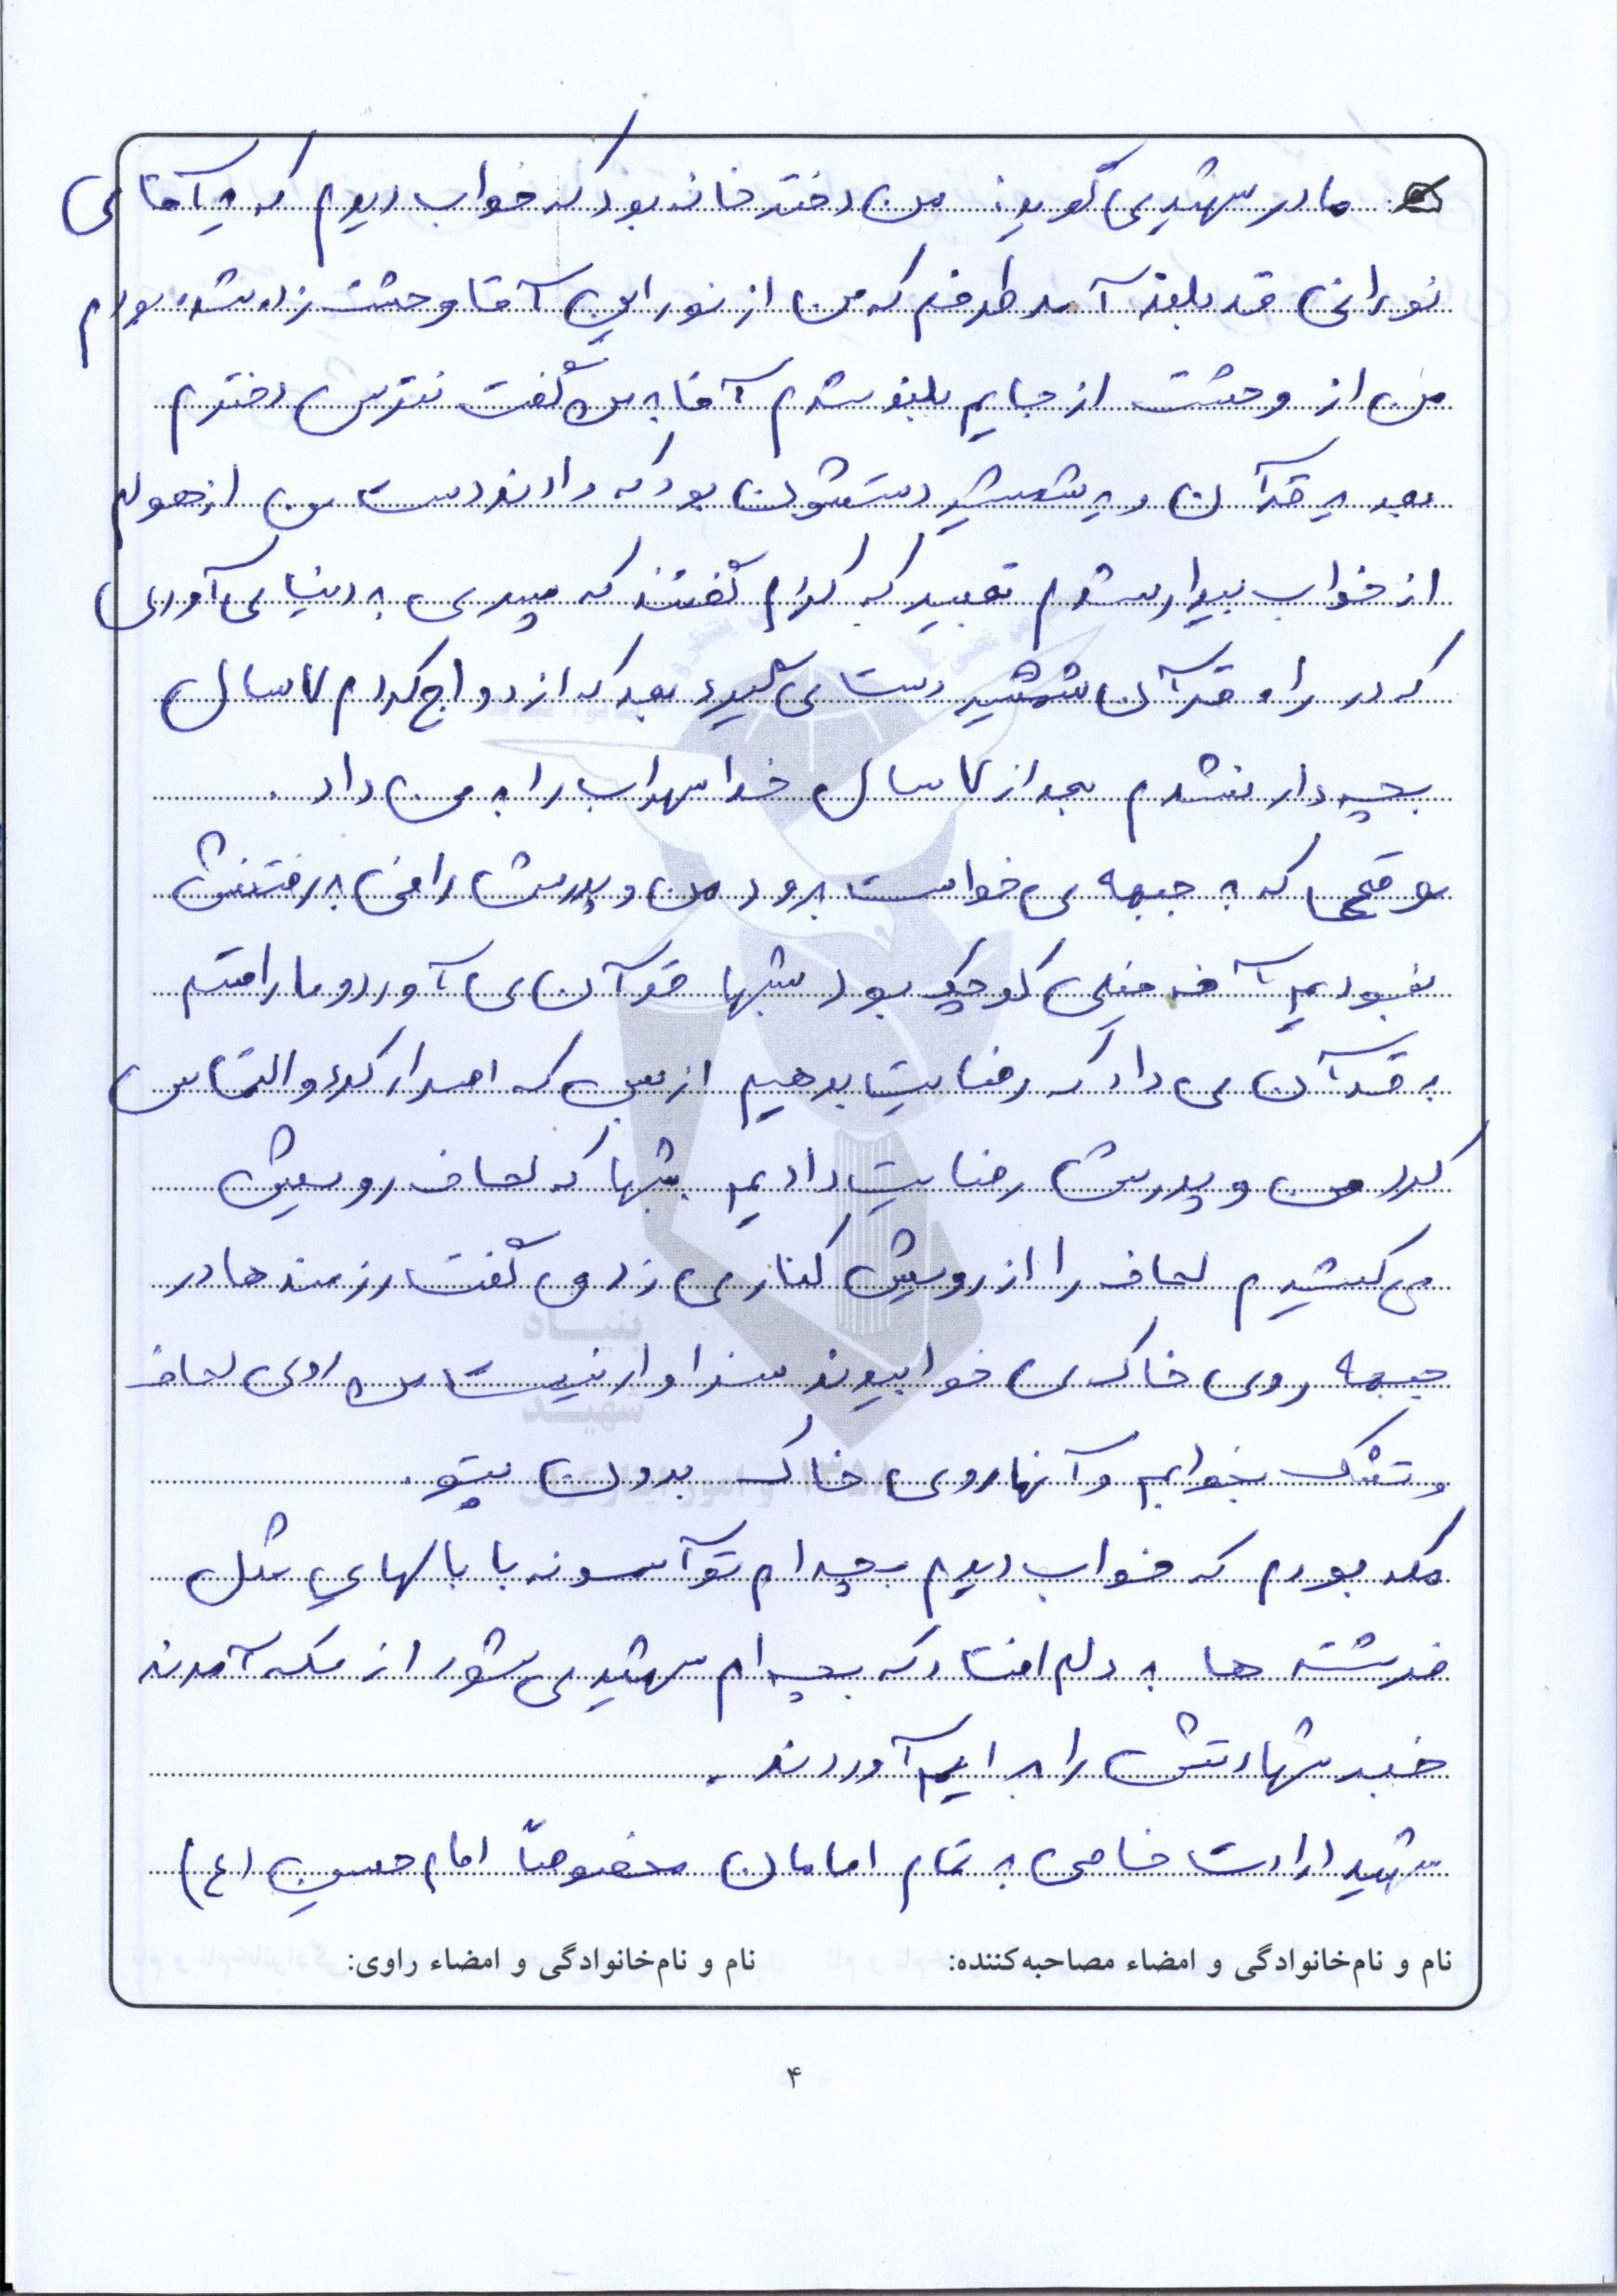 مادر شهید می گوید: من دختر خانه بود که خواب دیدم که یه آقای
نورانی قد بلند آمد طرفم که من از نور این آقا وحشت زده شده بودم
من از وحشت از جایم بلند شدم آقا به من گفت نترس دخترم
بعد یه قرآن و یه شمشیر دستشون بود که دادند دست من از هولم
از خواب بیدار شدم تعبیر که کردم گفتند که پسری به دنیا می آوری
که در راه قرآن شمشیر دستش می گیرد بعد که ازدواج کردم ۷ سال
بچه دار نشدم بعد از ۷ سال خدا سهراب را به من داد.
موقعی که به جبهه می خواست برود من و پدرش راضی به رفتنش
نبودیم آخه خیلی کوچک بود شبها قرآن می آورد و ما را قسم
به قرآن می داد که رضایت بدهیم از بس که اصرار کرد و التماس
کرد من و پدرش رضایت دادیم شبها که لحاف رویش
می کشیدم لحاف را از رویش کنار می زد می گفت رزمنده ها در
جبهه روی خاک می خوابیدند سزاوار نیست من روی لحاف
و تشک بخوابم و آنها روی خاک بدون پتو.
مکه بودم که خواب دیدم بچه ام تو آسمونه با بالهای مثل
فرشته ها به دلم افتاد که بچه ام شهید می شود از مکه آمدند
خبر شهادتش را برایم آوردند.
شهید ارادت خاصی به تمام امامان مخصوصاً امام حسین (ع)
نام و نام‌خانوادگی و امضاء مصاحبه‌کننده: نام و نام‌خانوادگی و امضاء راوی:
۴